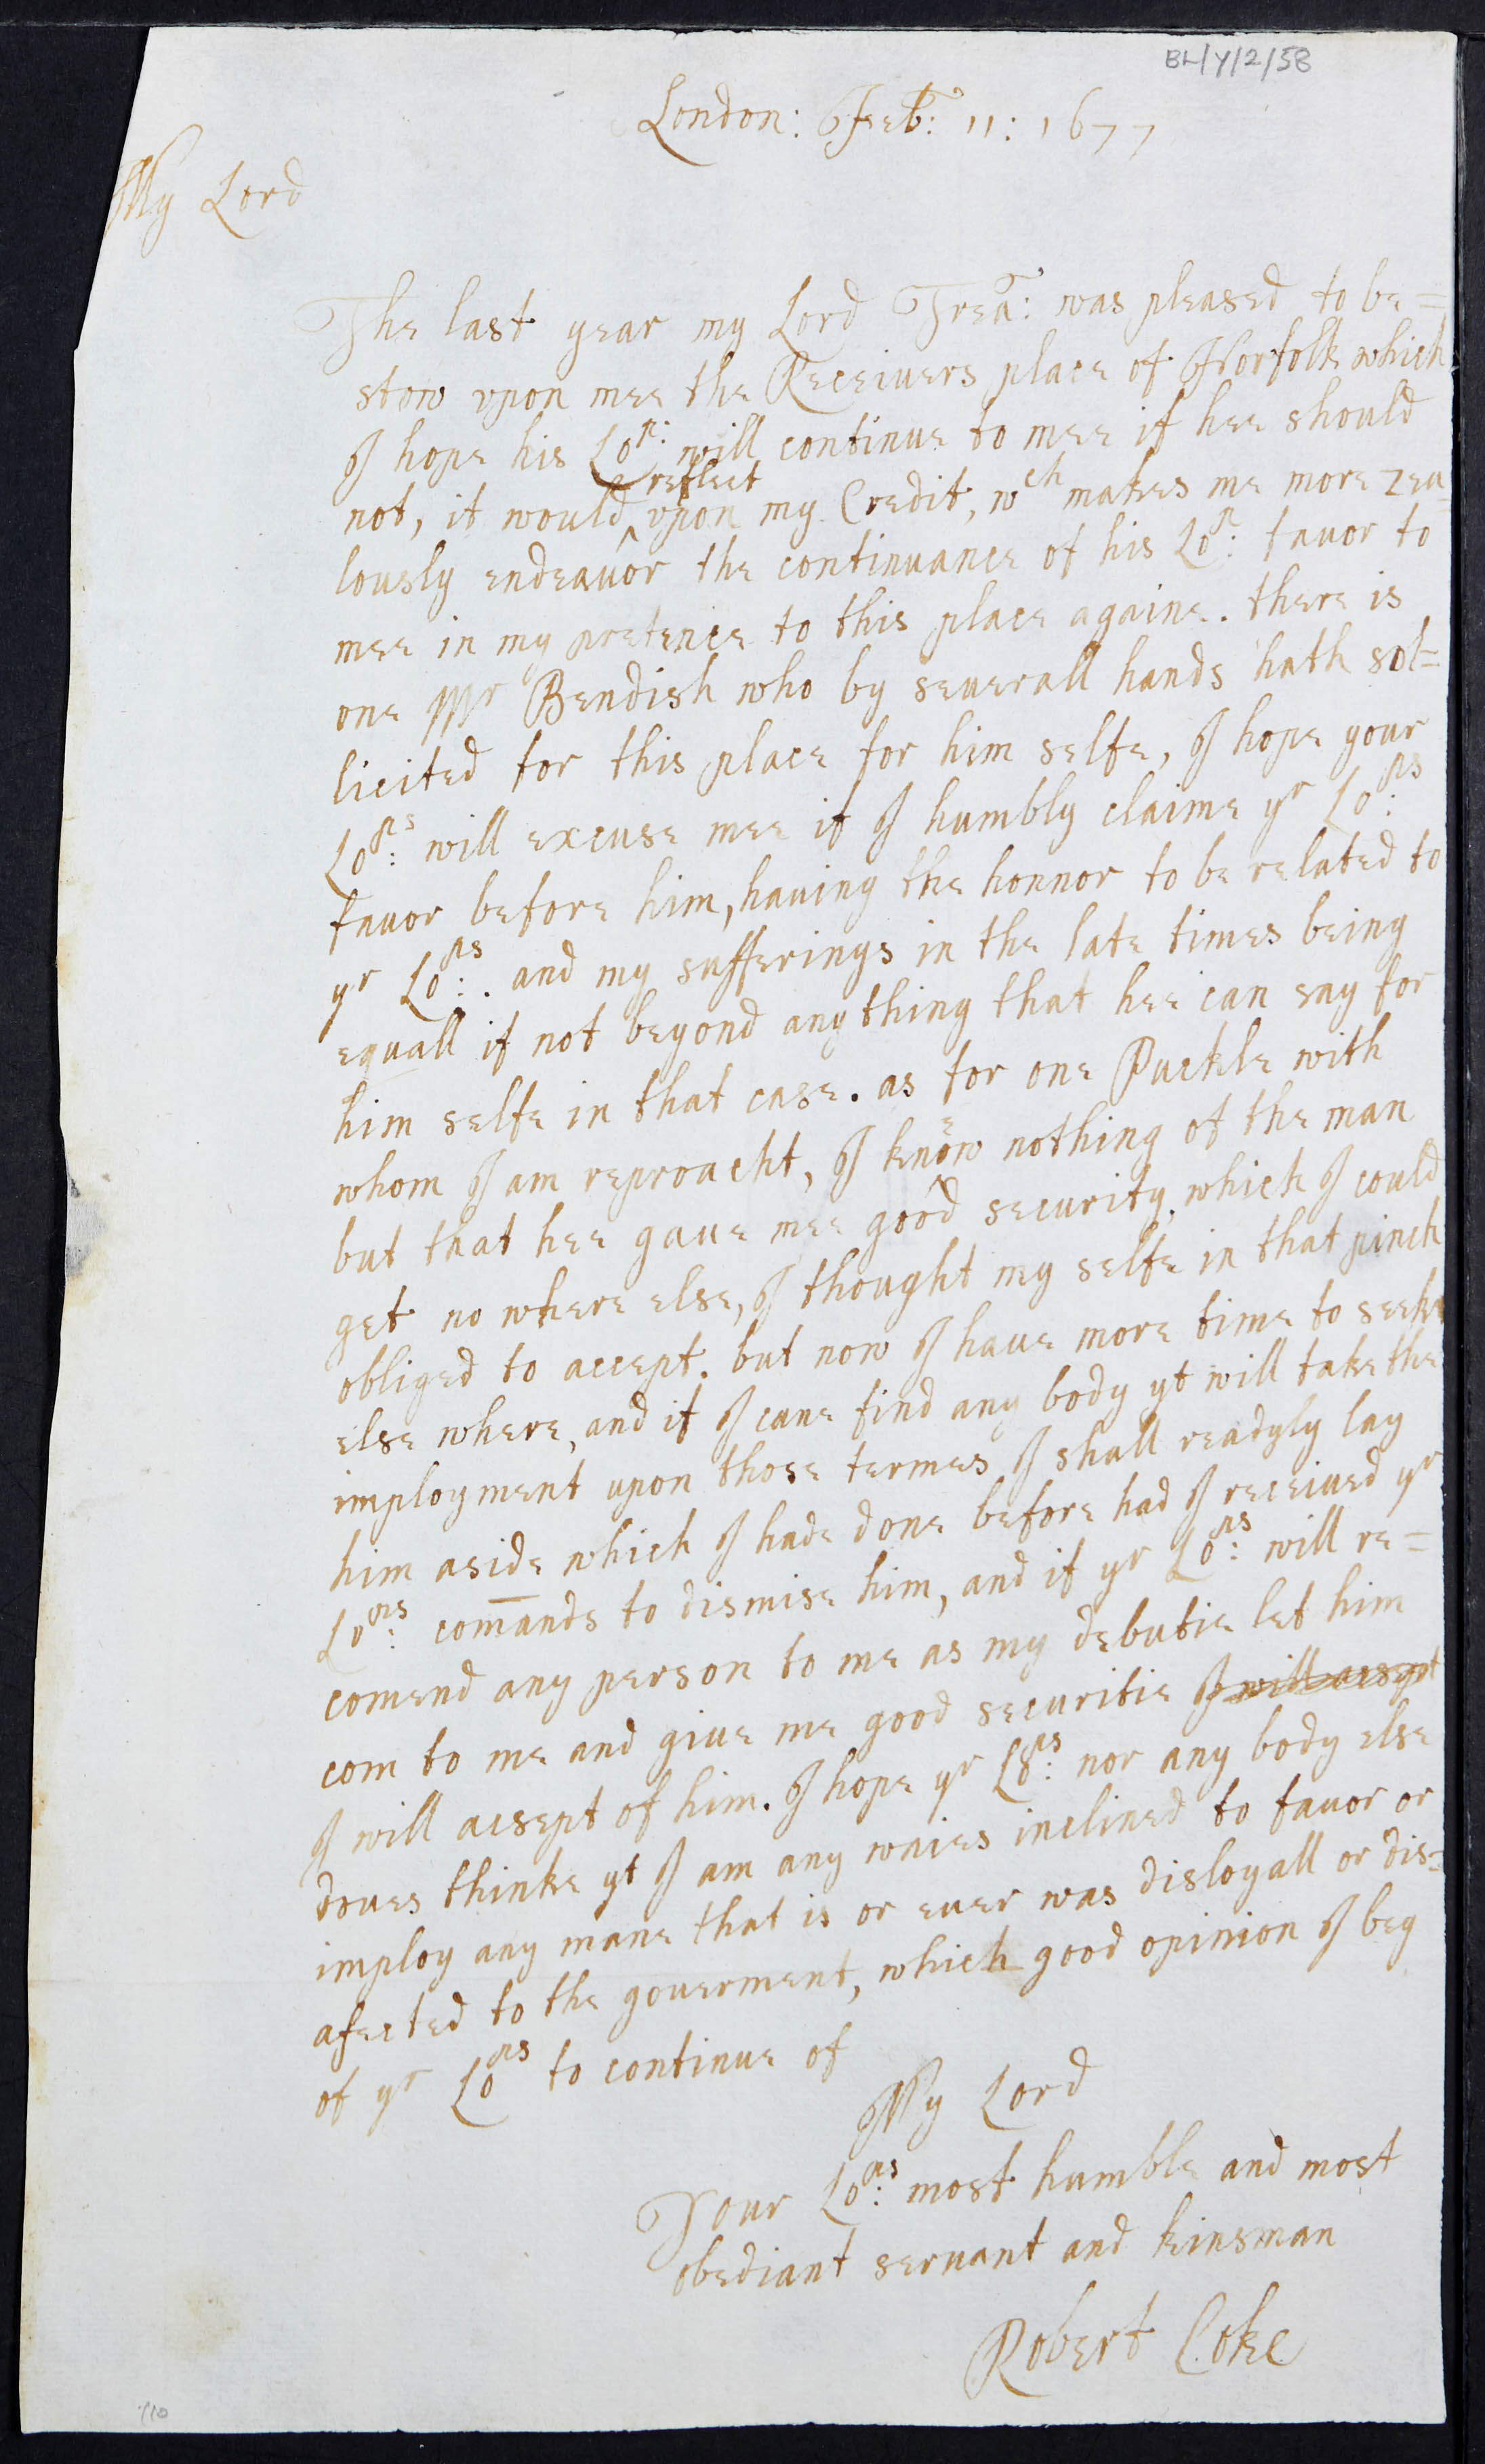 BL/Y/2/58
London: Feb: 11: 1677
My Lord
The last year my Lord Trea: was pleased to be=
stow vpon mee the Receiuers place of Norfolk which
I hope his Lop: will continue to mee if hee should
not, it would ^ reflect vpon my Credit, wch makes me more zea
lously endeauor the continuance of his Lop: fauor to
mee in my pretence to this place againe. there is
one Mr Bendish who by seuerall hands hath sol=
licited for this place for him selfe, I hope your
Lops: will excuse mee if I humbly claime yr Lops:
fauor before him, hauing the honnor to be related to
yr Lops:. and my sufferings in the late times being
equall if not beyond any thing that hee can say for
him selfe in that case. as for one Puckle with
whom I am reproacht, I know nothing of the man
but that hee gaue mee good security, which I could
get no where else, I thought my selfe in that pinch
obliged to accept. but now I haue more time to seeke
else where, and if I cane find any body yt will take the
imployment upon those termes I shall readyly lay
him aside which I hade done before had I receiued yr
Lops: comands to dismise him, and if yr Lops: will re=
comend any person to me as my debutie let him
com to me and giue me good securitie I will acsept
I will acsept of him. I hope yr Lops: nor any body else
doues thinke yt I am any waies inclined to fauor or
imploy any mane that is or euer was disloyall or dis=
afected to the gouerment, which good opinion I beg
of yr Lops to continue of
My Lord
Your Lops: most humble and most
obediant seruant and kinsman
Robert Coke
110